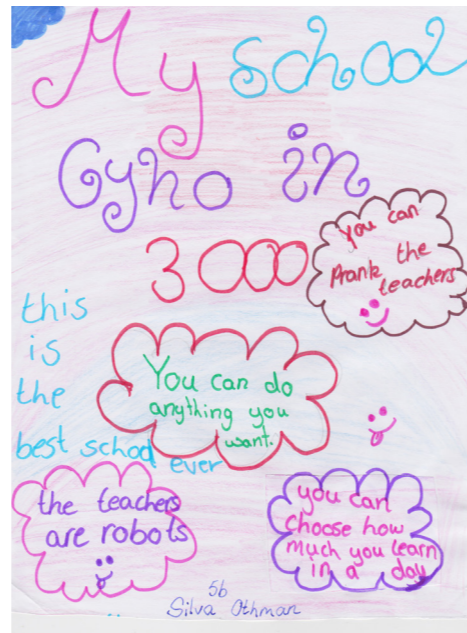 My school
Gyho in
3000
You can
Prank the
teachers
this
is
the
best school ever
You can do
anything you
want.
the teachers
are robots
you can
choose how
much you learn
in a day
5b
Silva Othman